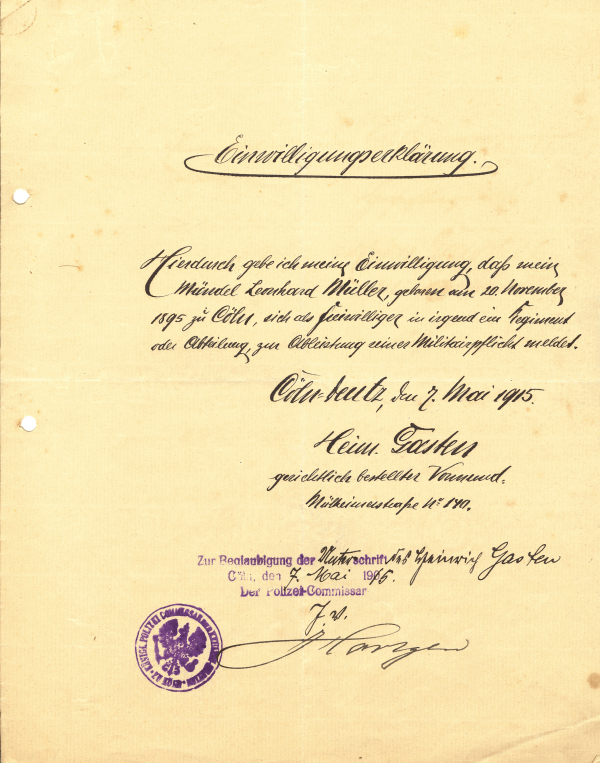 Einwilligungserklärung.
Hierdurch gebe ich meine Einwilligung, daß mein
Mündel Leonhard Müller, geboren am 20. November
1895 zu Cöln, sich als Freiwilliger in irgend ein Regiment
oder Abteilung, zur Ableistung seiner Militairpflicht meldet.
Cöln-Deutz, den 7. Mai 1915.
Heinr. Gasten
gerichtlich bestellter Vormund.
Mülheimerstraße No 140.
Zur Beglaubigung der Unterschrift des Heinrich Gasten
Cöln, den 7. Mai 1915.
Der Polizei-Commissar
J. V.
KÖNIGL. POLIZEI COMMISSAR